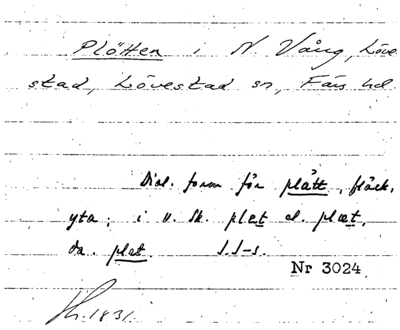 Plötten i N Vång, Löve
stad, Lövestad sn, Färs hd.
Dial. form för plätt, fläck,
yta; i v. Sk. plæt el. plæt,
da. plet J.J-s.
Nr 3024
1831.